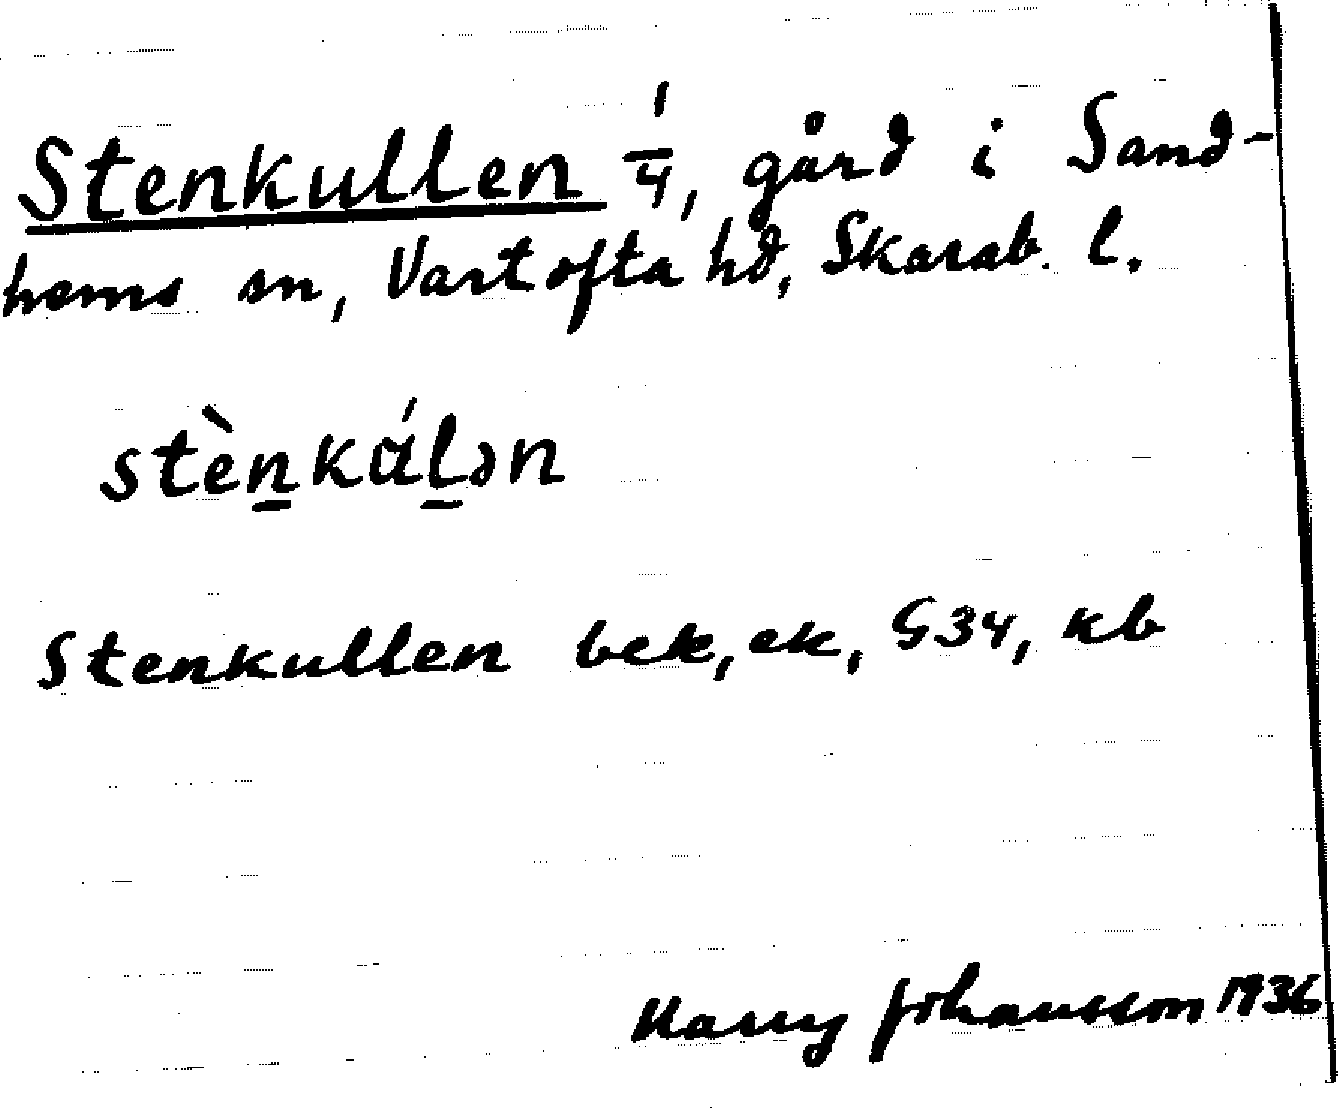 Stenkullen 1/4, gård i Sand-
hems sn, Vartofta hd, Skarab. l.
stènkálən
Stenkullen bek, ek, G34, kb
Harry Johansson 1936